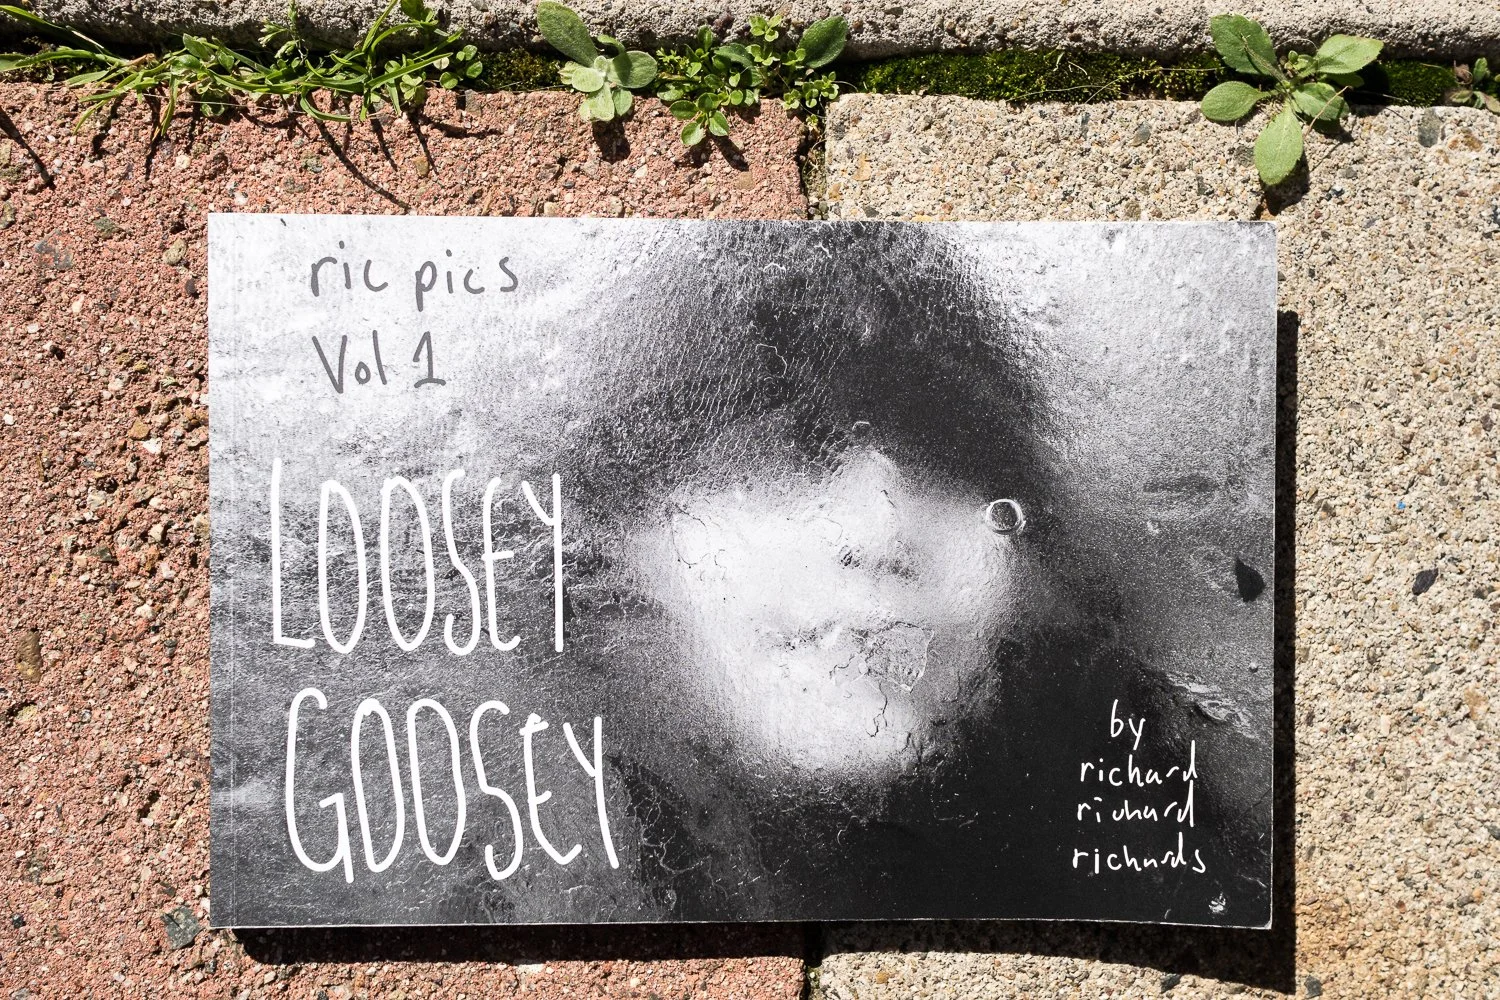 ric pics
Vol 1
LOOSEY
GOOSEY
by
richard
richard
richards